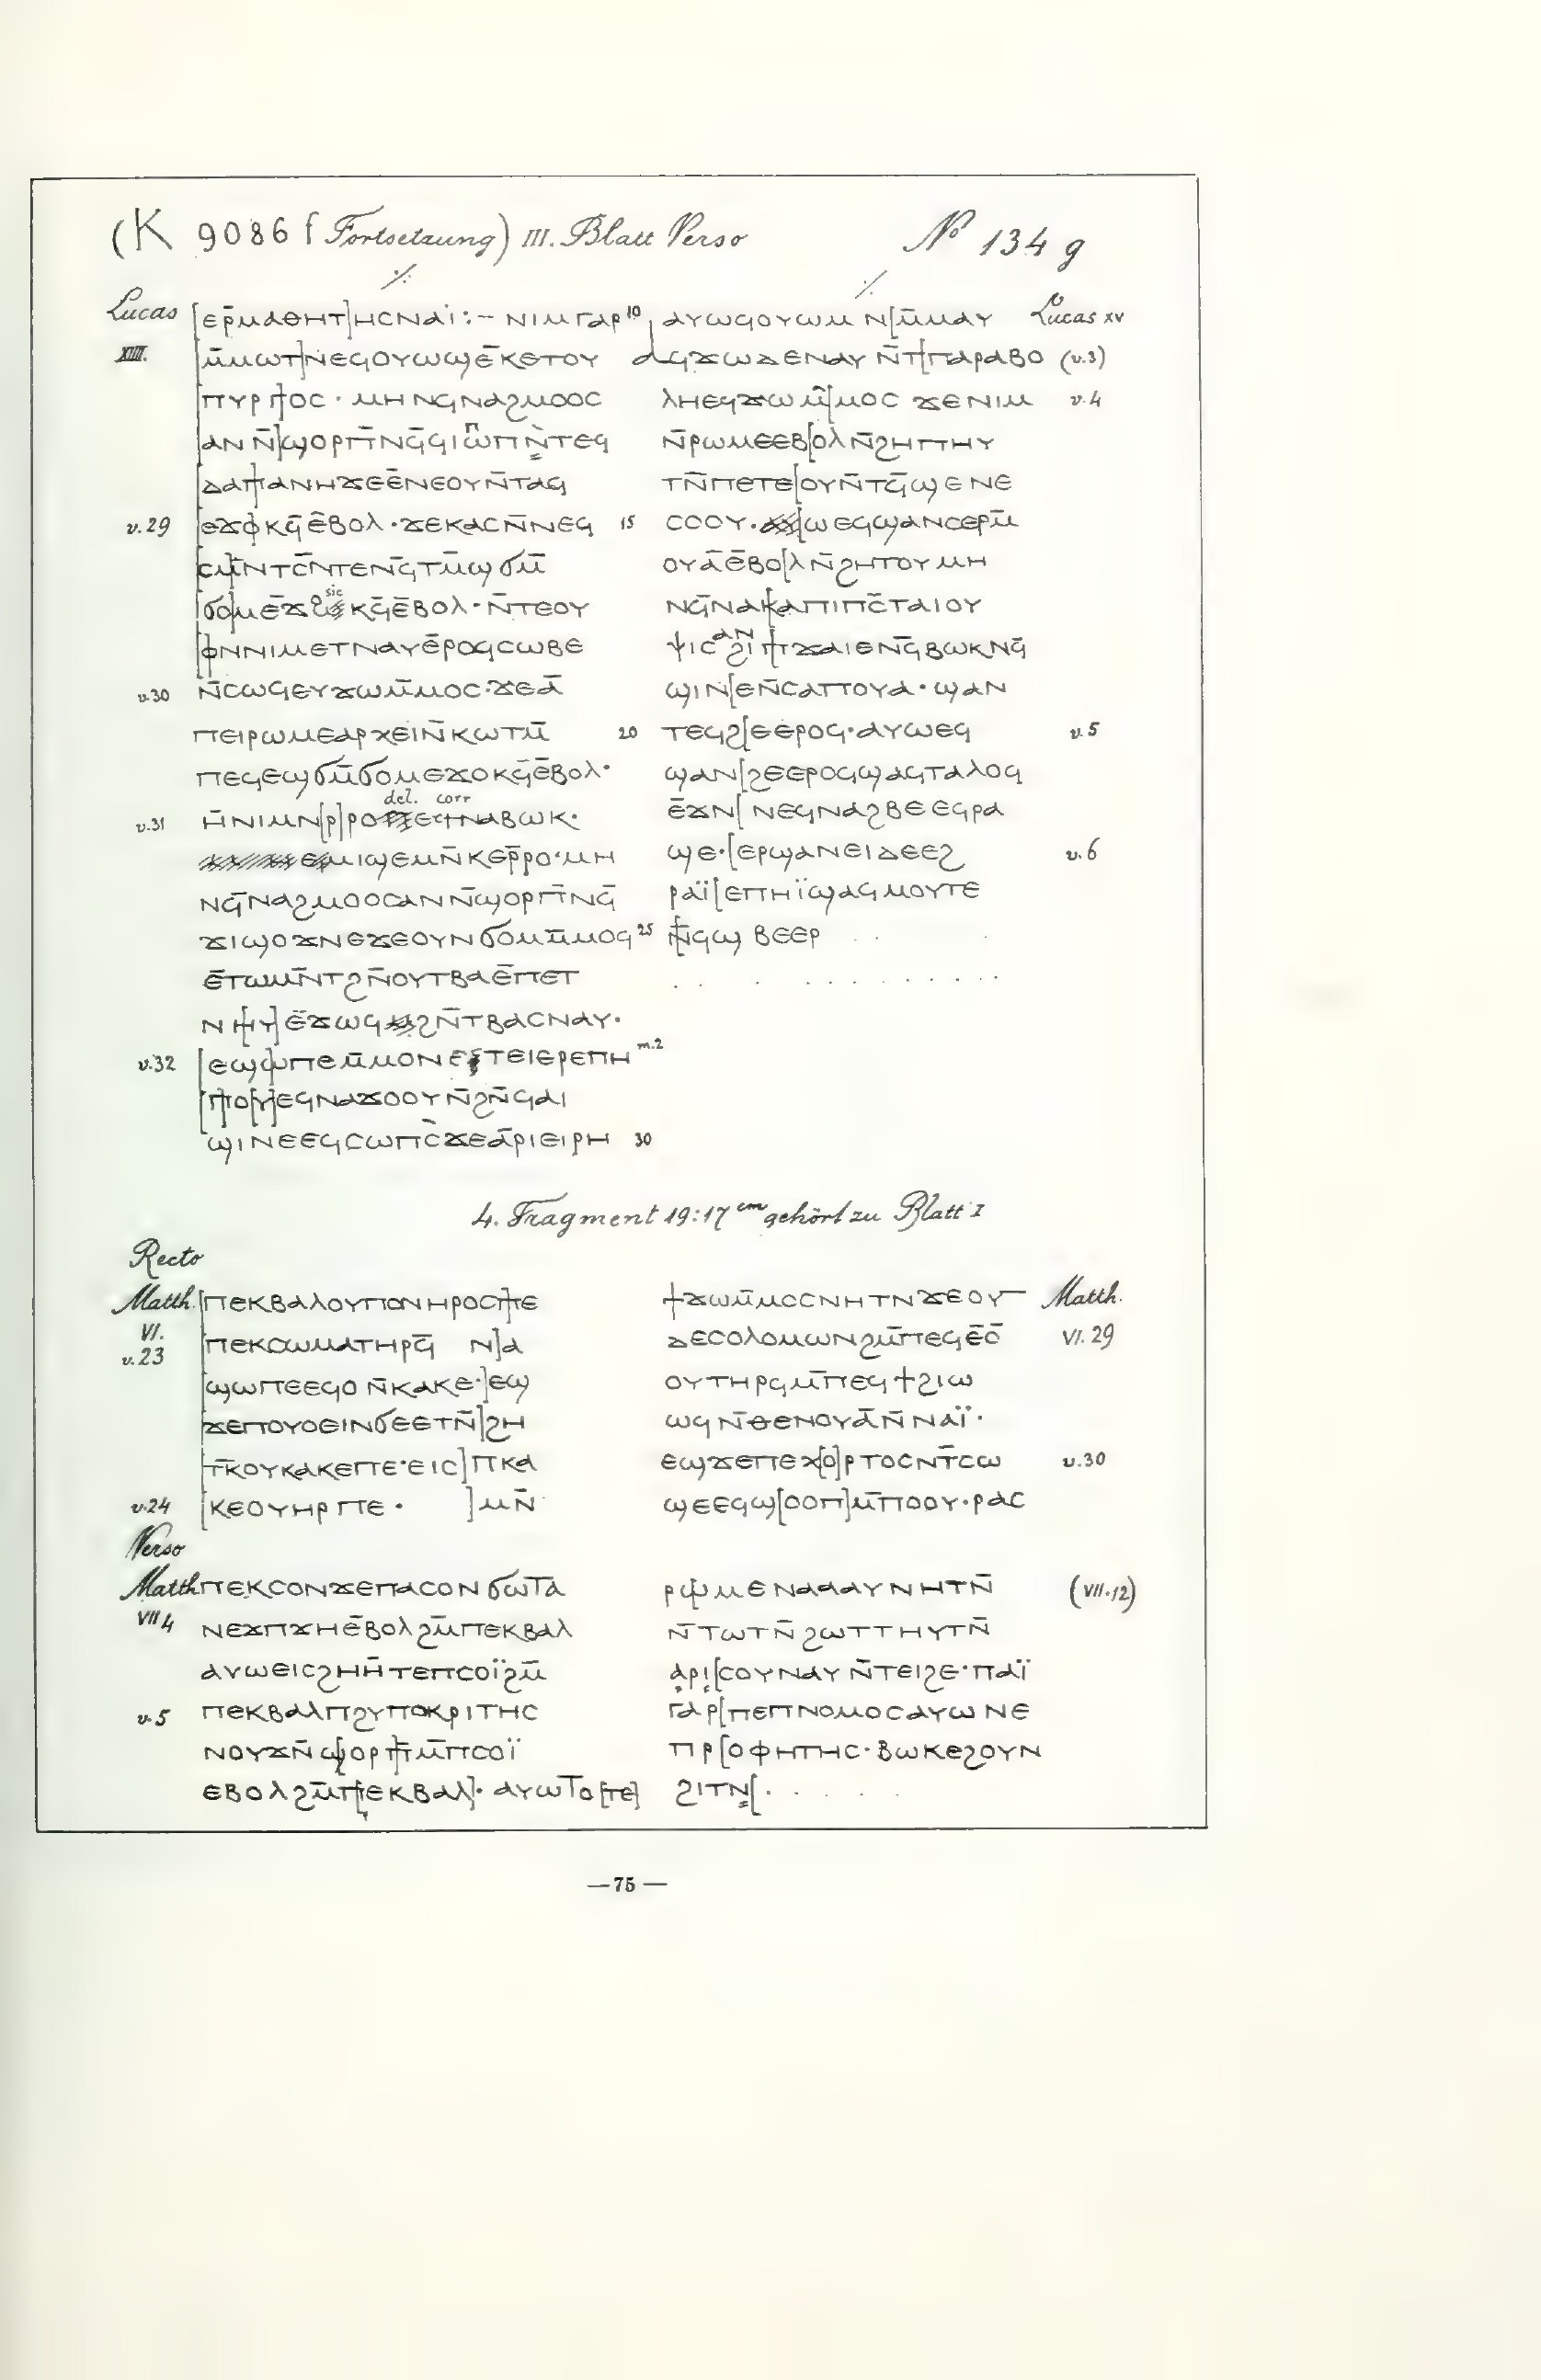 (K 9086 f Fortsetzung) III. Blatt Verso
No 134 g
Lucas XIIII.
[ⲉⲣ̄ⲙⲁⲑⲏⲧ]ⲏⲥⲛⲁⲓ̈:– ⲛⲓⲙⲅⲁⲣ 10
[ⲙ̄ⲙⲱⲧ]ⲛⲉϥⲟⲩⲱϣⲉ̄ⲕⲉⲧⲟⲩ
[ⲡⲩⲣⲅ]ⲟⲥ · ⲙⲏ ⲛϥⲛⲁϩⲙⲟⲟⲥ
[ⲁⲛ ⲛ̄]ϣⲟⲣⲡ̄ⲛϥ̄ϥⲓⲱⲡ ⲛ̄ⲧⲉϥ
[ⲇⲁⲡ]ⲁⲛⲏϫⲉⲉ̄ⲛⲉⲟⲩⲛ̄ⲧⲁϥ
v.29 [ⲉϫⲟ]ⲕϥ̄ⲉ̄ⲃⲟⲗ · ϫⲉⲕⲁⲥⲛ̄ⲛⲉϥ 15
[ⲥⲙ]ⲛⲧⲥ̄ⲛⲧⲉⲛϥ̄ⲧⲙ̄ϣϭⲙ̄
[ϭⲟ]ⲙⲉ̄ϫⲟⲕϥ̄ⲉ̄ⲃⲟⲗ · ⲛ̄ⲧⲉⲟⲩ
[ⲟ]ⲛⲛⲓⲙⲉⲧⲛⲁⲩⲉ̄ⲣⲟϥⲥⲱⲃⲉ
v.30 ⲛ̄ⲥⲱϥⲉⲩϫⲱⲙ̄ⲙⲟⲥ·ϫⲉⲁ̄
ⲡⲉⲓⲣⲱⲙⲉⲁⲣⲭⲉⲓⲛ̄ⲕⲱⲧⲙ̄ 20
ⲡⲉϥⲉϣϭⲙ̄ϭⲟⲙⲉϫⲟⲕϥ̄ⲉ̄ⲃⲟⲗ·
del. corr
v.31 ⲏ̄ⲛⲓⲙⲛ[ⲣ]ⲣⲟⲡⲉⲧⲛⲁⲃⲱⲕ·
ⲉⲙⲓϣⲉⲙⲛ̄ⲕⲉⲣ̄ⲣⲟ·ⲙⲏ
ⲛϥ̄ⲛⲁϩⲙⲟⲟⲥⲁⲛⲛ̄ϣⲟⲣⲡ̄ⲛϥ̄
ϫⲓϣⲟϫⲛⲉϫⲉⲟⲩⲛϭⲟⲙⲙ̄ⲙⲟϥ 25
ⲉ̄ⲧⲱⲙⲛ̄ⲧϩⲛ̄ⲟⲩⲧⲃⲁⲉ̄ⲡⲉⲧ
ⲛ[ⲏⲩ]ⲉ̄ϫⲱϥϩⲛ̄ⲧⲃⲁⲥⲛⲁⲩ·
v.32 [ⲉϣⲱ]ⲡⲉⲙ̄ⲙⲟⲛⲉⲧⲉⲓⲉⲣⲉⲡⲏ m.2
[ⲡⲟⲩ]ⲉϥⲛⲁϫⲟⲟⲩⲛ̄ϩⲛ̄ϥⲁⲓ
ϣⲓⲛⲉⲉϥⲥⲱⲡⲥ̀ϫⲉⲁ̄ⲣⲓⲉⲓⲣⲏ 30
ⲁⲩⲱϥⲟⲩⲱⲙ ⲛ[ⲙ̄ⲙⲁⲩ Lucas xv
ⲁϥϫⲱⲇⲉⲛⲁⲩ ⲛ̄ⲧ[ⲡⲁⲣⲁⲃⲟ (v.3)
ⲗⲏⲉϥϫⲱ ⲙ̄[ⲙⲟⲥ ϫⲉⲛⲓⲙ v.4
ⲛ̄ⲣⲱⲙⲉⲉⲃ[ⲟⲗ ⲛ̄ϩⲏⲧⲧⲏⲩ
ⲧⲛ̄ⲡⲉⲧⲉ[ⲟⲩⲛ̄ⲧϥ̄ϣⲉ ⲛⲉ
ⲥⲟⲟⲩ·[ⲱ ⲉϥϣⲁⲛⲥⲉⲣⲙ̄
ⲟⲩⲁ̄ⲉ̄ⲃⲟ[ⲗ ⲛ̄ϩⲏⲧⲟⲩ ⲙⲏ
ⲛϥ̄ⲛⲁⲕ[ⲁⲡⲓⲡⲥ̄ⲧⲁⲓⲟⲩ
ⲯⲓⲥ ⲁⲛ ϩⲓ ⲡ[ϫⲁⲓⲉⲛϥ̄ⲃⲱⲕⲛϥ̄
ϣⲓⲛ[ⲉⲛ̄ⲥⲁⲡⲟⲩⲁ·ϣⲁⲛ
ⲧⲉϥϩ[ⲉⲉⲣⲟϥ·ⲁⲩⲱⲉϥ v.5
ϣⲁⲛ[ϩⲉⲉⲣⲟϥϣⲁϥⲧⲁⲗⲟϥ
ⲉ̄ϫⲛ[ ⲛⲉϥⲛⲁϩⲃⲉ ⲉϥⲣⲁ
ϣⲉ·[ⲉⲣϣⲁⲛⲉⲓⲇⲉⲉϩ v.6
ⲣⲁⲓ̈[ⲉⲡⲏⲓ̈ϣⲁϥⲙⲟⲩⲧⲉ
ⲛ̄[ⲛϥϣ ⲃⲉⲉⲣ
4. Fragment 19:17 cm gehört zu Blatt I
Recto
Matth. VI. v.23
[ⲡⲉⲕⲃⲁⲗⲟⲩⲡⲟⲛⲏⲣⲟⲥ]ⲡⲉ
[ⲡⲉⲕⲥⲱⲙⲁⲧⲏⲣϥ̄ ⲛ]ⲁ
[ϣⲱⲡⲉⲉϥⲟ ⲛ̄ⲕⲁⲕⲉ·]ⲉϣ
[ϫⲉⲡⲟⲩⲟⲉⲓⲛϭⲉⲉⲧⲛ̄]ϩⲏ
[ⲧ̄ⲕⲟⲩⲕⲁⲕⲉⲡⲉ·ⲉⲓⲥ]ⲡⲕⲁ
v.24 [ⲕⲉⲟⲩⲏⲣ ⲡⲉ · ]ⲙⲛ̄
ϯϫⲱⲙ̄ⲙⲟⲥⲛⲏⲧⲛϫⲉⲟⲩ Matth.
ⲇⲉⲥⲟⲗⲟⲙⲱⲛϩⲙ̄ⲡⲉϥⲉ̄ⲟ̄ VI. 29
ⲟⲩⲧⲏⲣϥⲙ̄ⲡⲉϥϯϩⲓⲱ
ⲱϥⲛ̄ⲑⲉⲛⲟⲩⲁ̄ⲛ̄ⲛⲁⲓ̈·
ⲉϣϫⲉⲡⲉⲭ[ⲟ]ⲣⲧⲟⲥⲛⲧ̄ⲥⲱ v.30
ϣⲉⲉϥϣ[ⲟⲟⲡ]ⲙ̄ⲡⲟⲟⲩ·ⲣⲁⲥ
Verso
Matth VII 4
ⲡⲉⲕⲥⲟⲛϫⲉⲡⲁⲥⲟⲛϭⲱⲧⲁ
ⲛⲉϫⲡϫⲏⲉ̄ⲃⲟⲗϩⲙ̄ⲡⲉⲕⲃⲁⲗ
ⲁⲩⲱⲉⲓⲥϩⲏⲏ̄ⲧⲉⲡⲥⲟⲓ̈ϩⲙ̄
v.5 ⲡⲉⲕⲃⲁⲗⲡϩⲩⲡⲟⲕⲣⲓⲧⲏⲥ
ⲛⲟⲩϫⲛ̄ϣⲟⲣⲡ̄ⲙ̄ⲡⲥⲟⲓ̈
ⲉⲃⲟⲗϩⲙ̄ⲡ[ⲉⲕⲃⲁⲗ]· ⲁⲩⲱⲧⲟ[ⲧⲉ]
ⲣⲱⲙⲉⲛⲁⲁⲁⲩⲛⲏⲧⲛ̄ (VII.12)
ⲛ̄ⲧⲱⲧⲛ̄ϩⲱⲧⲧⲏⲩⲧⲛ̄
ⲁⲣⲓ[ⲥⲟⲩⲛⲁⲩ ⲛ̄ⲧⲉⲓϩⲉ·ⲡⲁⲓ̈
ⲅⲁⲣ[ⲡⲉⲡⲛⲟⲙⲟⲥⲁⲩⲱ ⲛⲉ
ⲡⲣ[ⲟⲫⲏⲧⲏⲥ·ⲃⲱⲕⲉϩⲟⲩⲛ
ϩⲓⲧⲛ[·
—75—